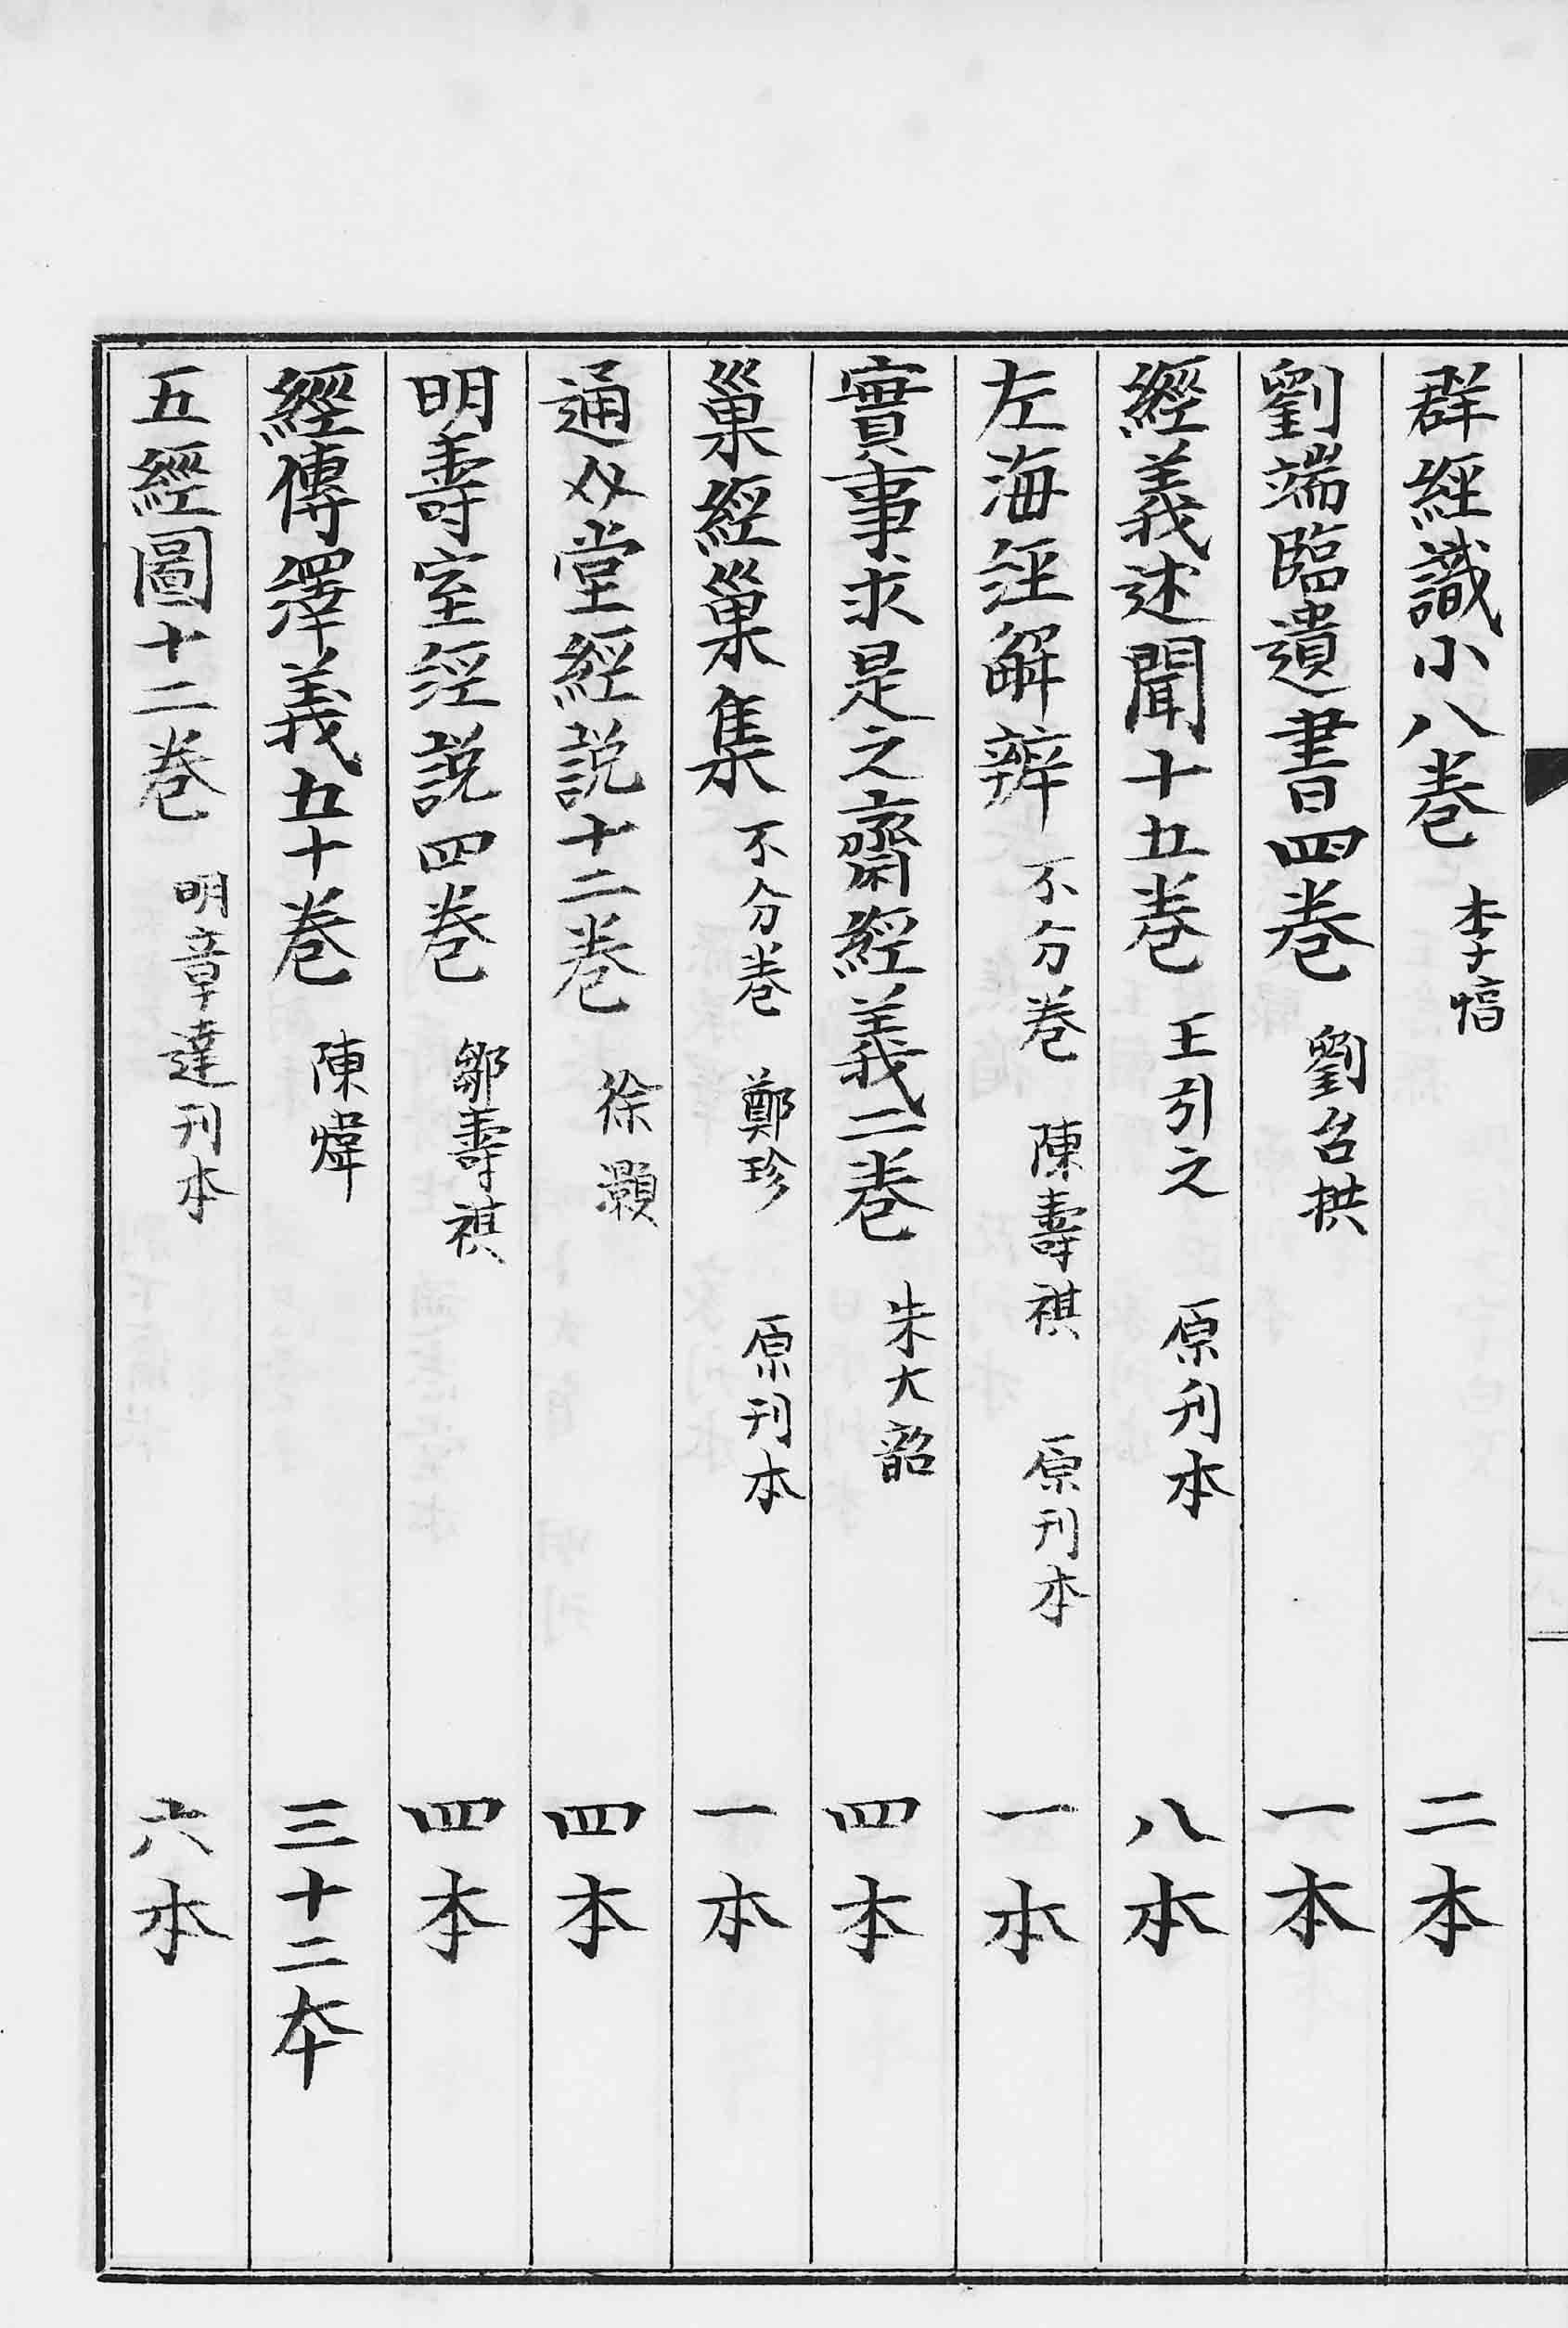 群經識小八卷 李惇 二本
劉端臨遺書四卷 劉台拱 一本
經義述聞十五卷 王引之 原刋本 八本
左海経解辨 不分卷 陳壽祺 原刊本 一本
實事求是之齋經義二卷 朱大韶 四本
巢經巢集 不分卷 鄭珍 原刊本 一本
通介堂經説十二卷 徐灝 四本
明壽室经説四卷 鄒壽祺 四本
經傳繹義五十卷 陳煒 三十二本
五經圖十二卷 明章達刊本 六本